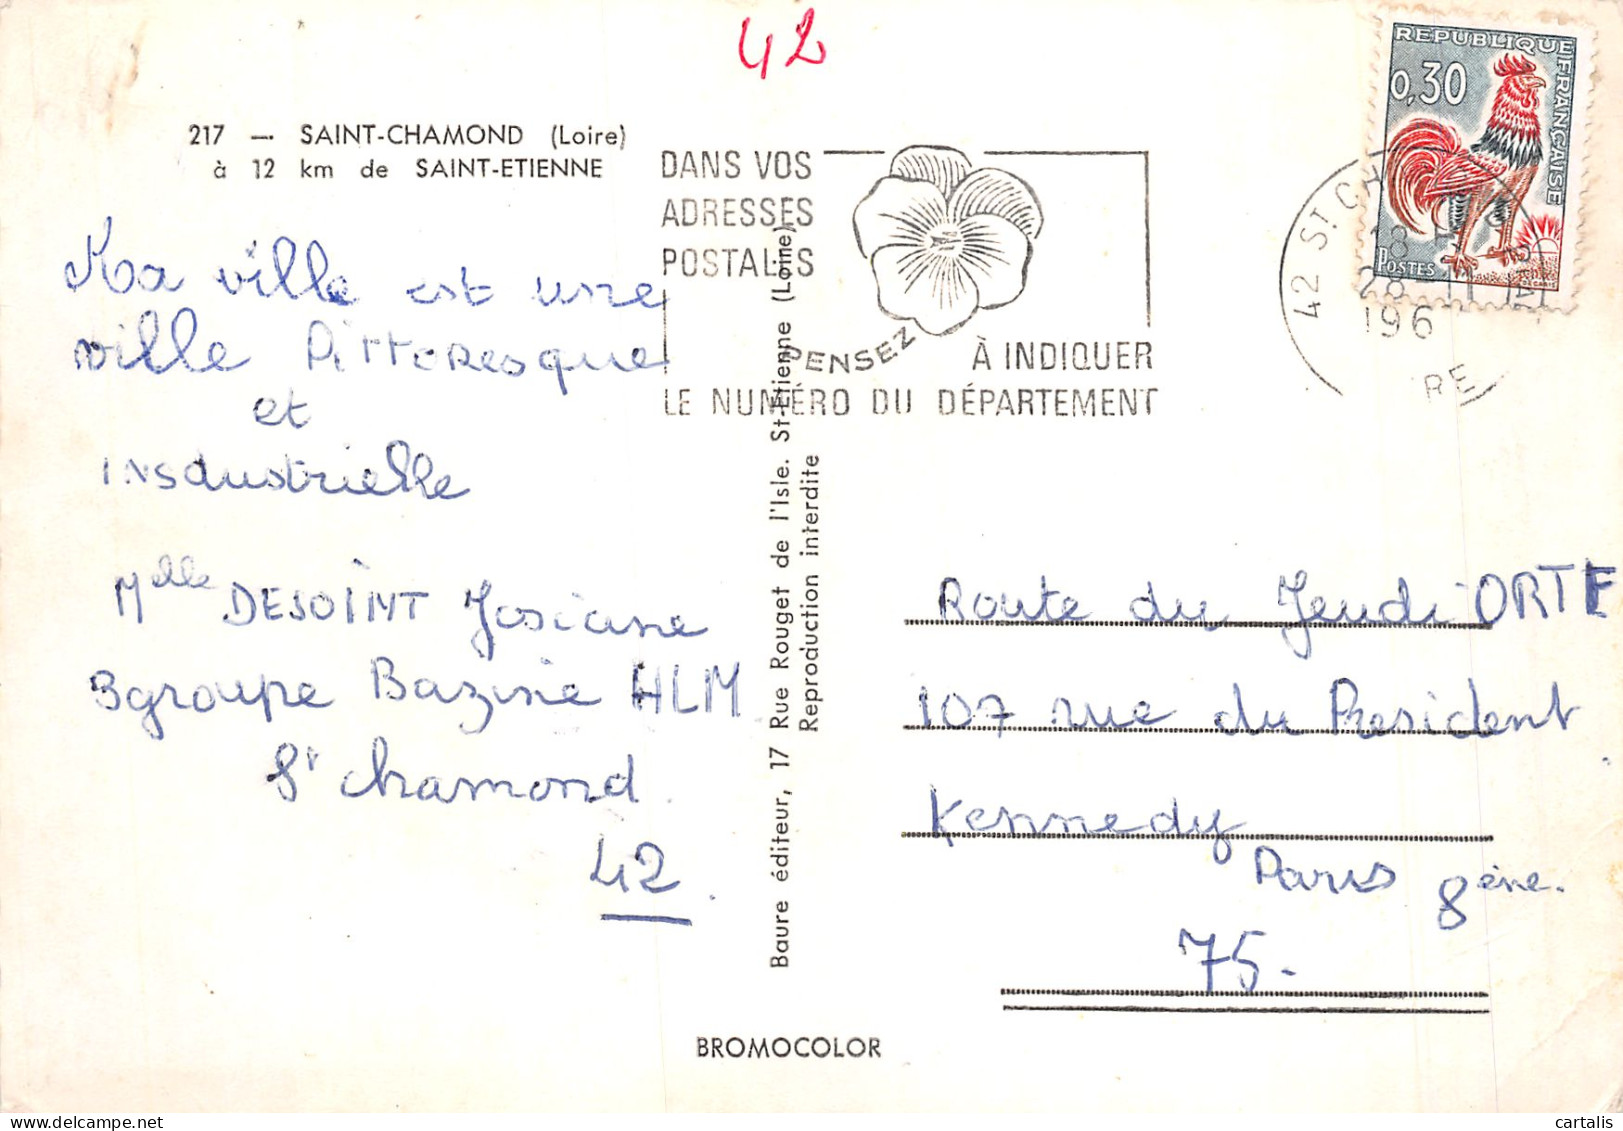 42
217 — SAINT-CHAMOND (Loire)
à 12 km de SAINT-ETIENNE
DANS VOS
ADRESSES
POSTALES
PENSEZ
À INDIQUER
LE NUMÉRO DU DÉPARTEMENT
REPUBLIQUE FRANÇAISE
0,30
POSTES
DECARIS
42 ST CHAMOND
18 H
28-11
196
RE
Ma ville est une
ville Pittoresque
et
Insdustrielle
Melle DESOINT Josiane
3groupe Bazine HLM
St chamond
42.
Baure éditeur, 17 Rue Rouget de l'Isle. St-Etienne (Loire)
Reproduction interdite
Route du Jeudi ORTF
107 rue du President
Kennedy
Paris 8ène.
75.
BROMOCOLOR
cartalis